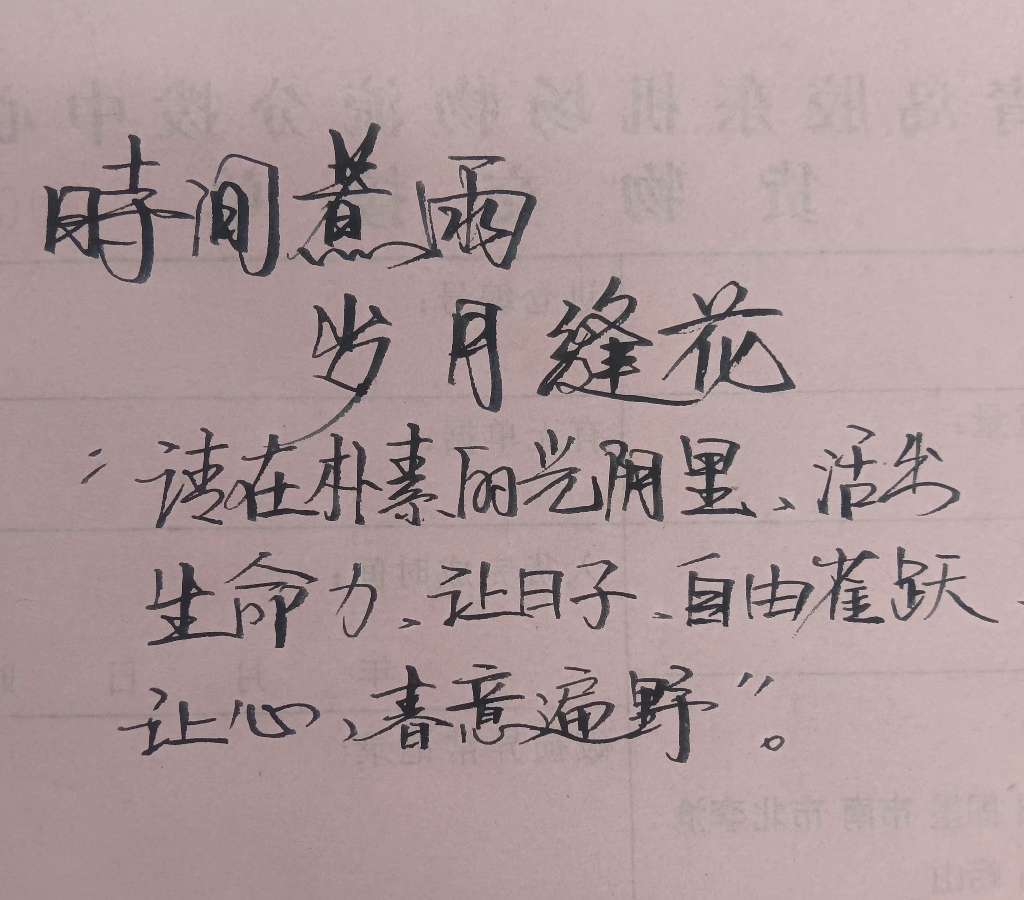 時间煮雨
岁月缝花
“请在朴素的光阴里、活出
生命力、让日子、自由雀跃、
让心、春意遍野”。